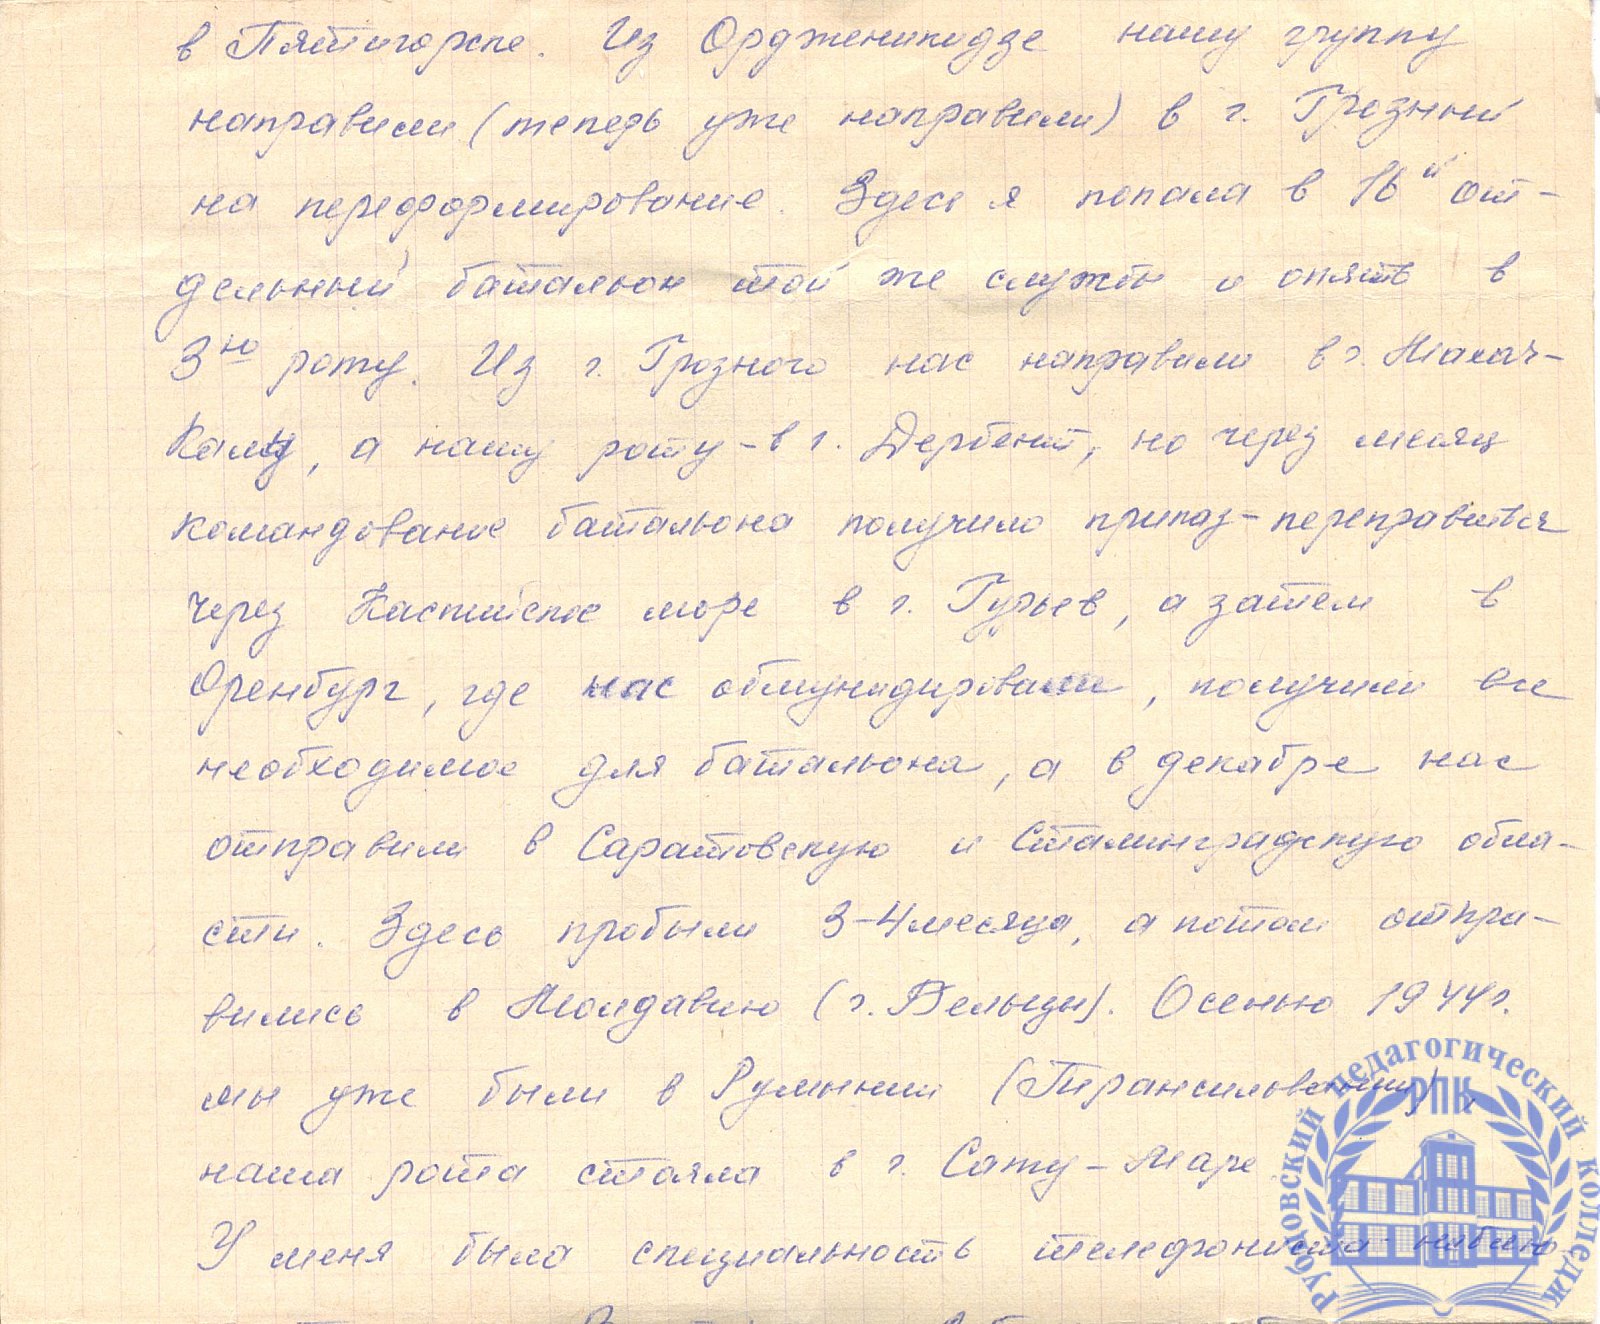 в Пятигорске. Из Орджоникидзе нашу группу
направили (теперь уже направили) в г. Грозный
на переформирование. Здесь я попала в 16й от-
дельный батальон той же службы и опять в
3ю роту. Из г. Грозного нас направили в г. Махач-
Калу, а нашу роту - в г. Дербент, но через месяц
командование батальона получило приказ - переправиться
через Каспийское море в г. Гурьев, а затем в
Оренбург, где нас обмундировали, получили все
необходимое для батальона, а в декабре нас
отправили в Саратовскую и Сталинградскую обла-
сти. Здесь пробыли 3-4 месяца, а потом отпра-
вились в Молдавию (г. Бельцы). Осенью 1944 г.
мы уже были в Румынии (Трансильвании),
наша рота стояла в г. Сату-Маре
У меня была специальность телефониста
РПК
Рубцовский педагогический колледж